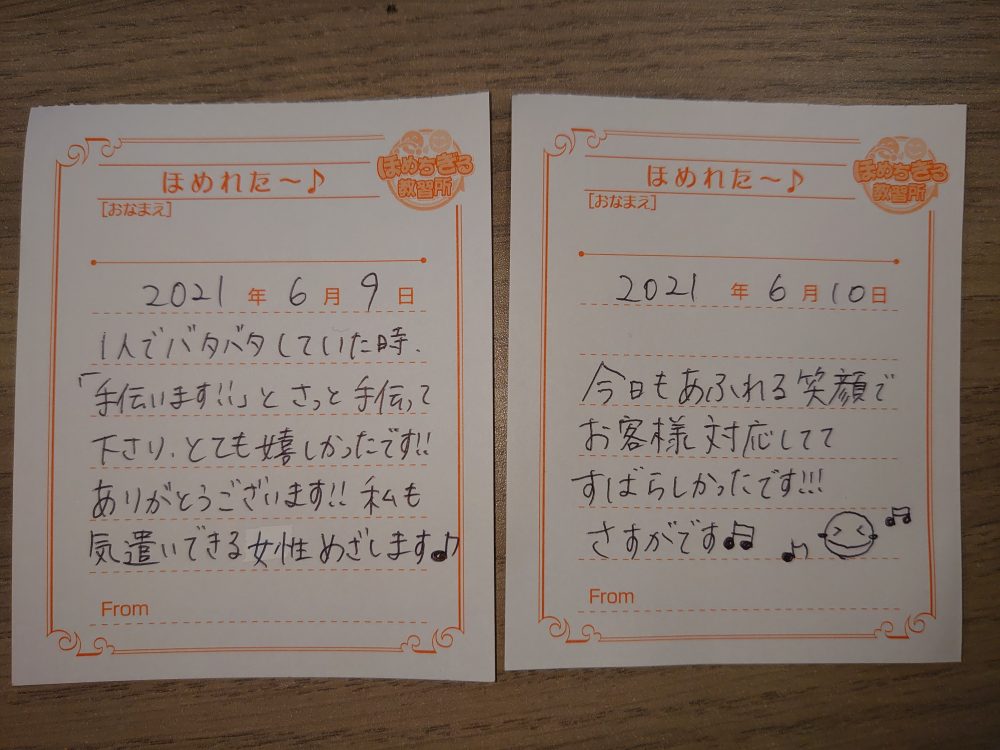 ほめちぎる
教習所
ほめれた〜♪
[おなまえ]
2021年6月9日
1人でバタバタしていた時、
「手伝います!!」とさっと手伝って
下さり、とても嬉しかったです!!
ありがとうございます!! 私も
気遣いできる女性めざします♪
From
ほめちぎる
教習所
ほめれた〜♪
[おなまえ]
2021年6月10日
今日もあふれる笑顔で
お客様対応してて
すばらしかったです!!!
さすがです♫
From